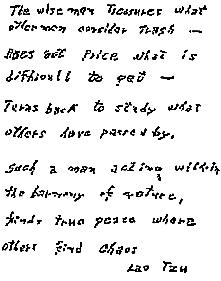 The wise man treasures what
other men consider trash —
Does not price what is
difficult to get —
Turns back to study what
others have passed by.
Such a man acting within
the harmony of nature,
finds true peace where
others find chaos
Lao Tzu